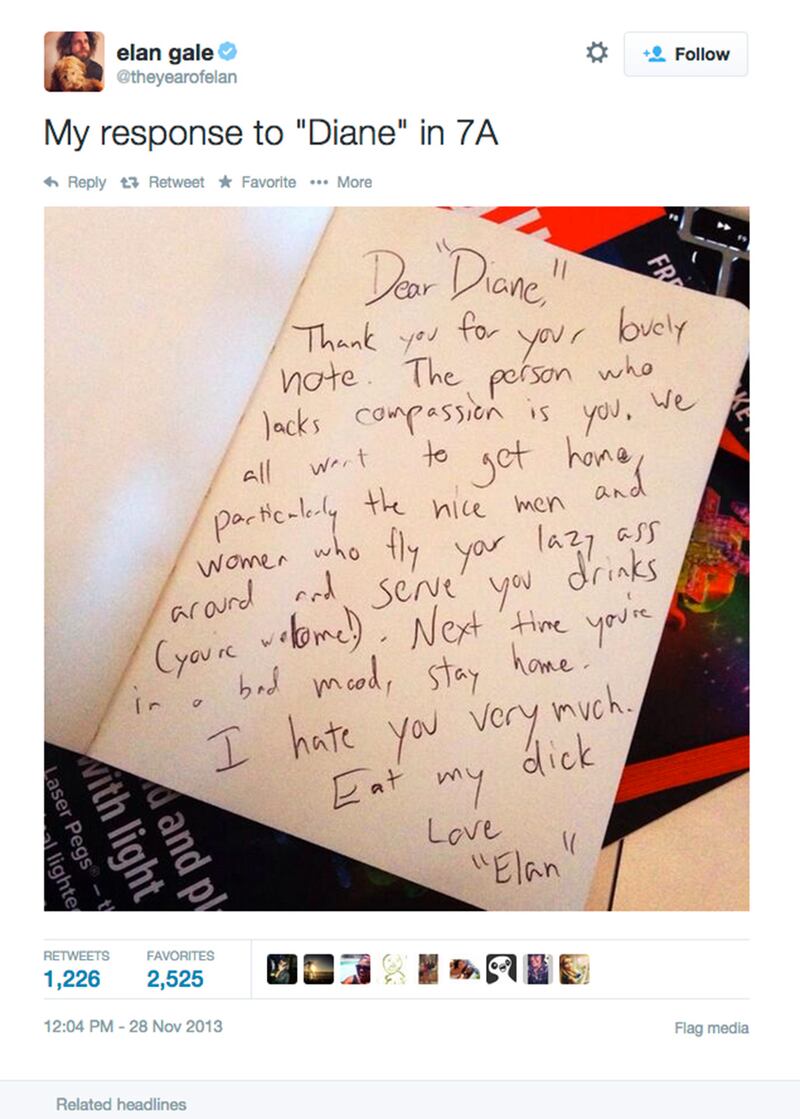 elan gale
@theyearofelan
Follow
My response to "Diane" in 7A
Reply Retweet Favorite More
Dear "Diane,"
Thank you for your lovely
note. The person who
lacks compassion is you. We
all want to get home,
particularly the nice men and
women who fly your lazy ass
around and serve you drinks
(you're welcome!). Next time you're
in a bad mood, stay home.
I hate you very much.
Eat my dick
Love
"Elan"
FRE
KET
F8
F9
d and pl
With light
Laser Pegs® – th
al lighte
RETWEETS
1,226
FAVORITES
2,525
12:04 PM - 28 Nov 2013
Flag media
Related headlines